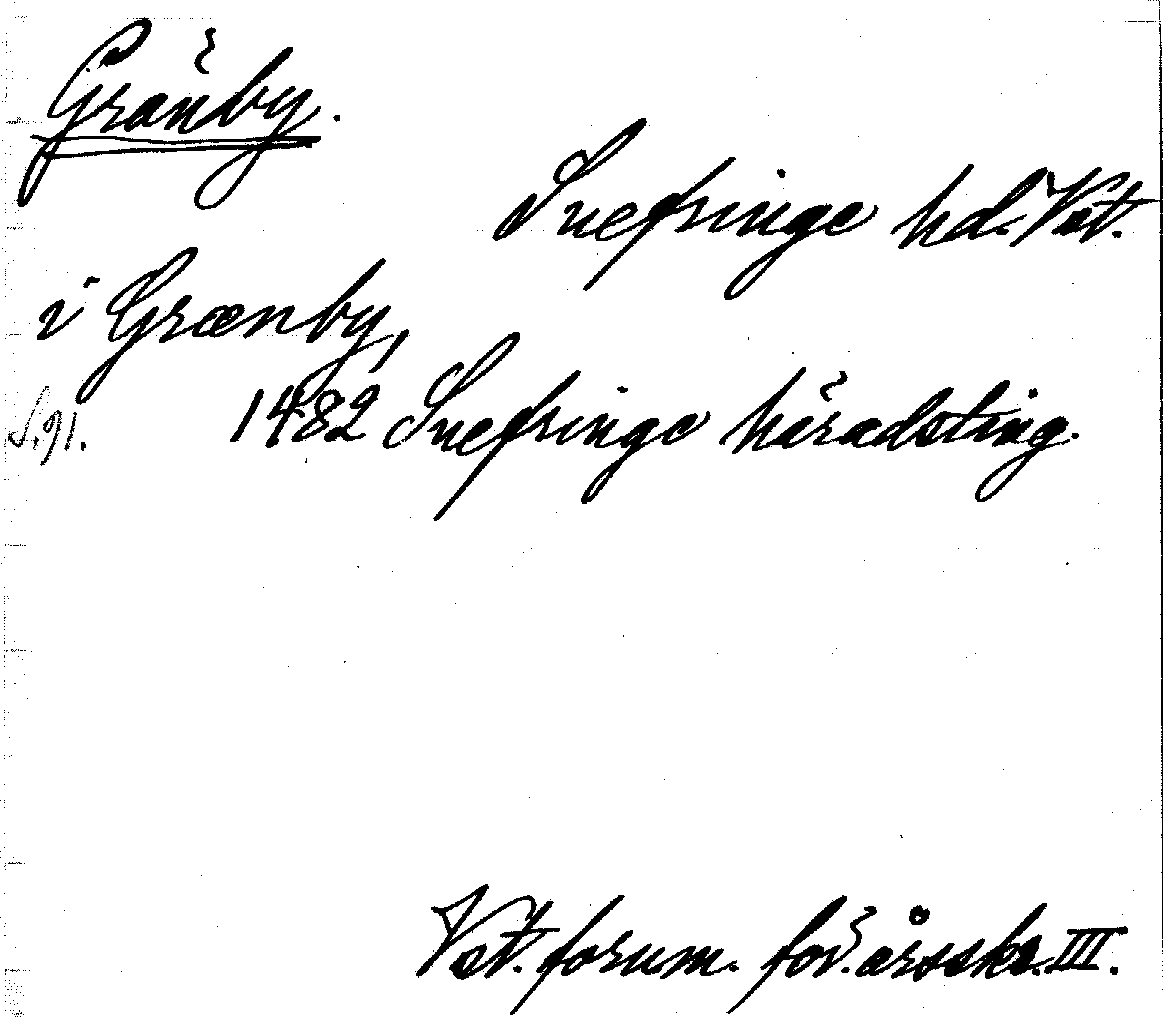 Gränby.
Snefringe hd. Vst.
i Grænby,
S. 91. 1482 Snefringe häradsting.
Vst. fornm. för. årsskr. III.